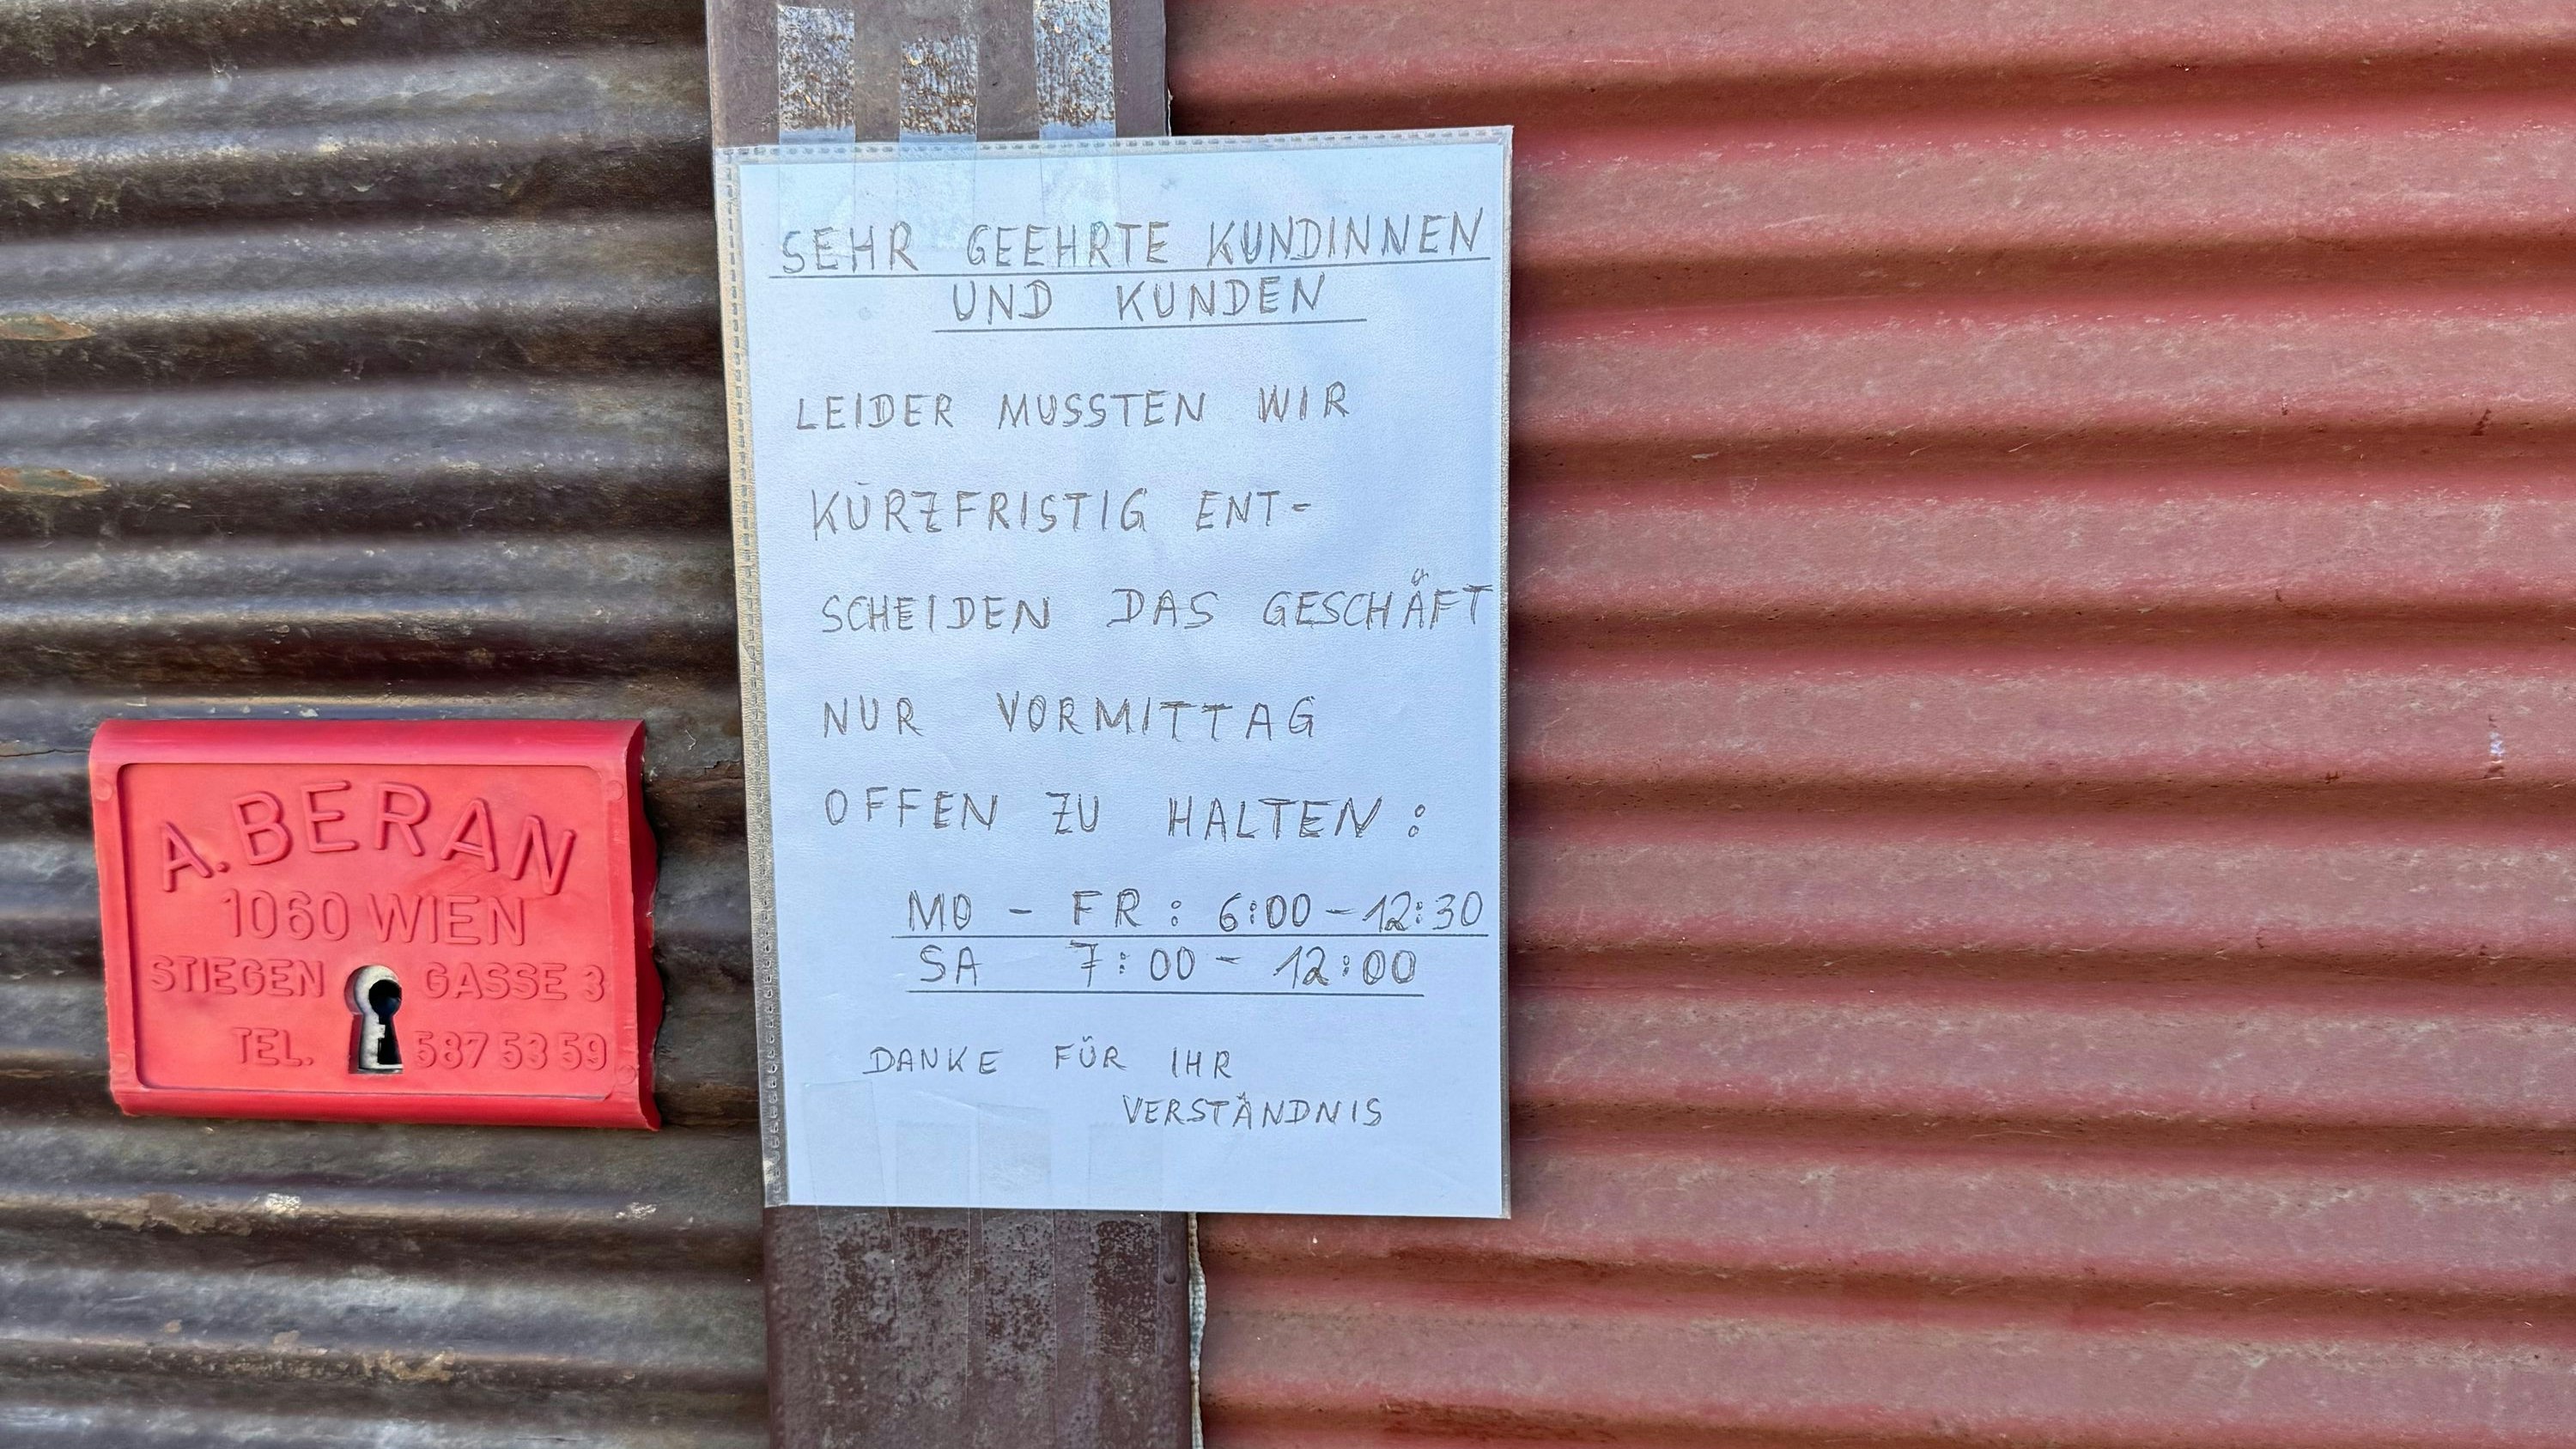 SEHR GEEHRTE KUNDINNEN
UND KUNDEN
LEIDER MUSSTEN WIR
KURZFRISTIG ENT-
SCHEIDEN DAS GESCHÄFT
NUR VORMITTAG
OFFEN ZU HALTEN:
MO - FR: 6:00-12:30
SA 7:00- 12:00
DANKE FÜR IHR
VERSTÄNDNIS
A. BERAN
1060 WIEN
STIEGEN GASSE 3
TEL. 587 53 59